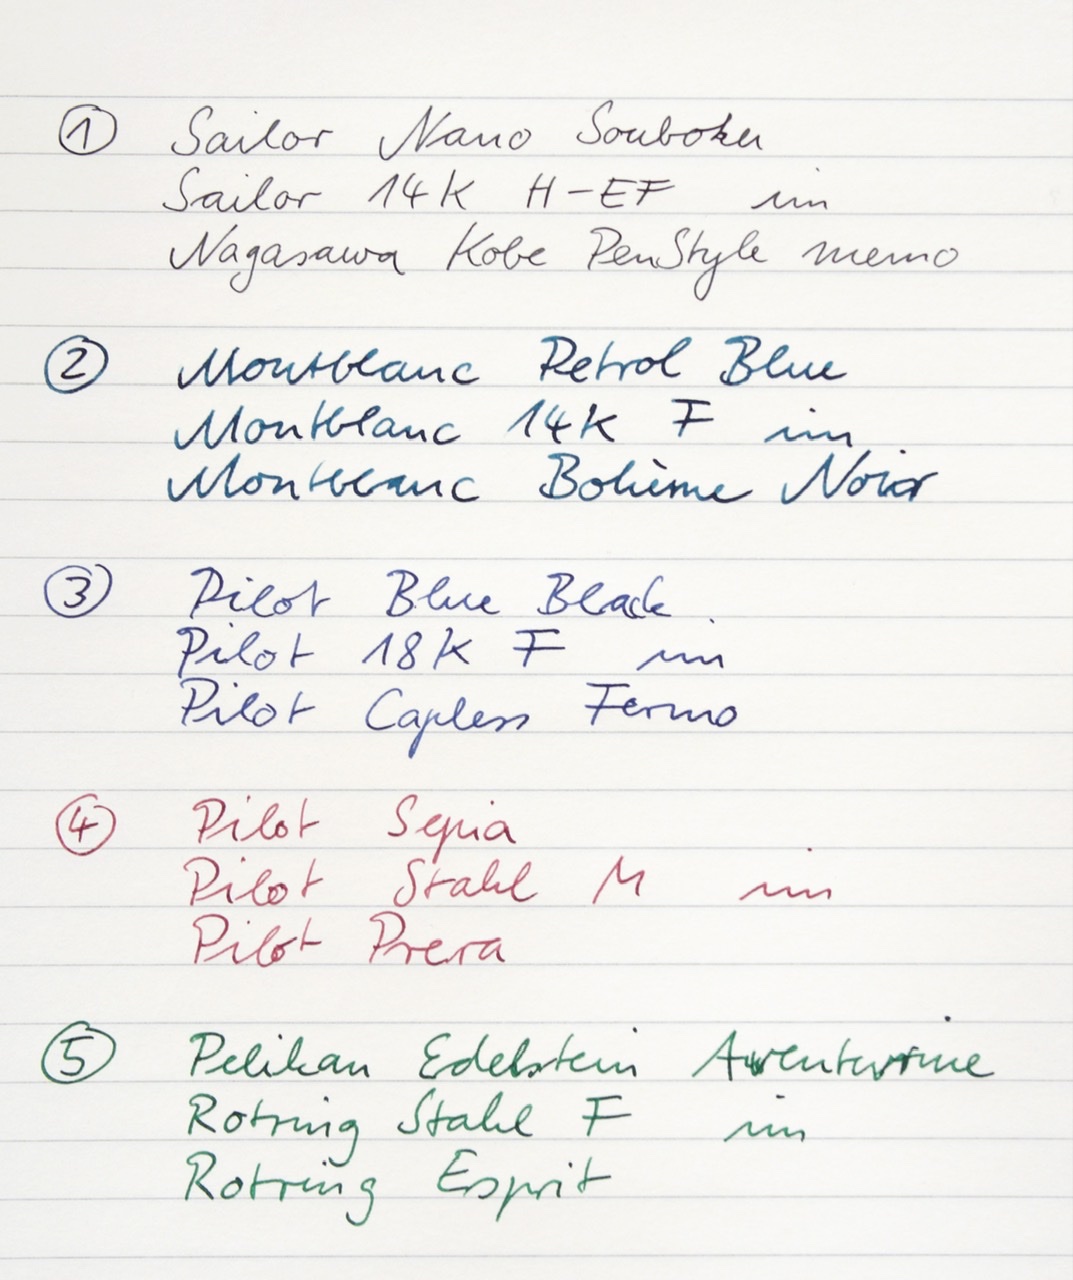 ① Sailor Nano Souboku
Sailor 14K H-EF im
Nagasawa Kobe PenStyle memo
② Montblanc Petrol Blue
Montblanc 14K F im
Montblanc Bohème Noir
③ Pilot Blue Black
Pilot 18K F im
Pilot Capless Fermo
④ Pilot Sepia
Pilot Stahl M im
Pilot Prera
⑤ Pelikan Edelstein Aventurine
Rotring Stahl F im
Rotring Esprit